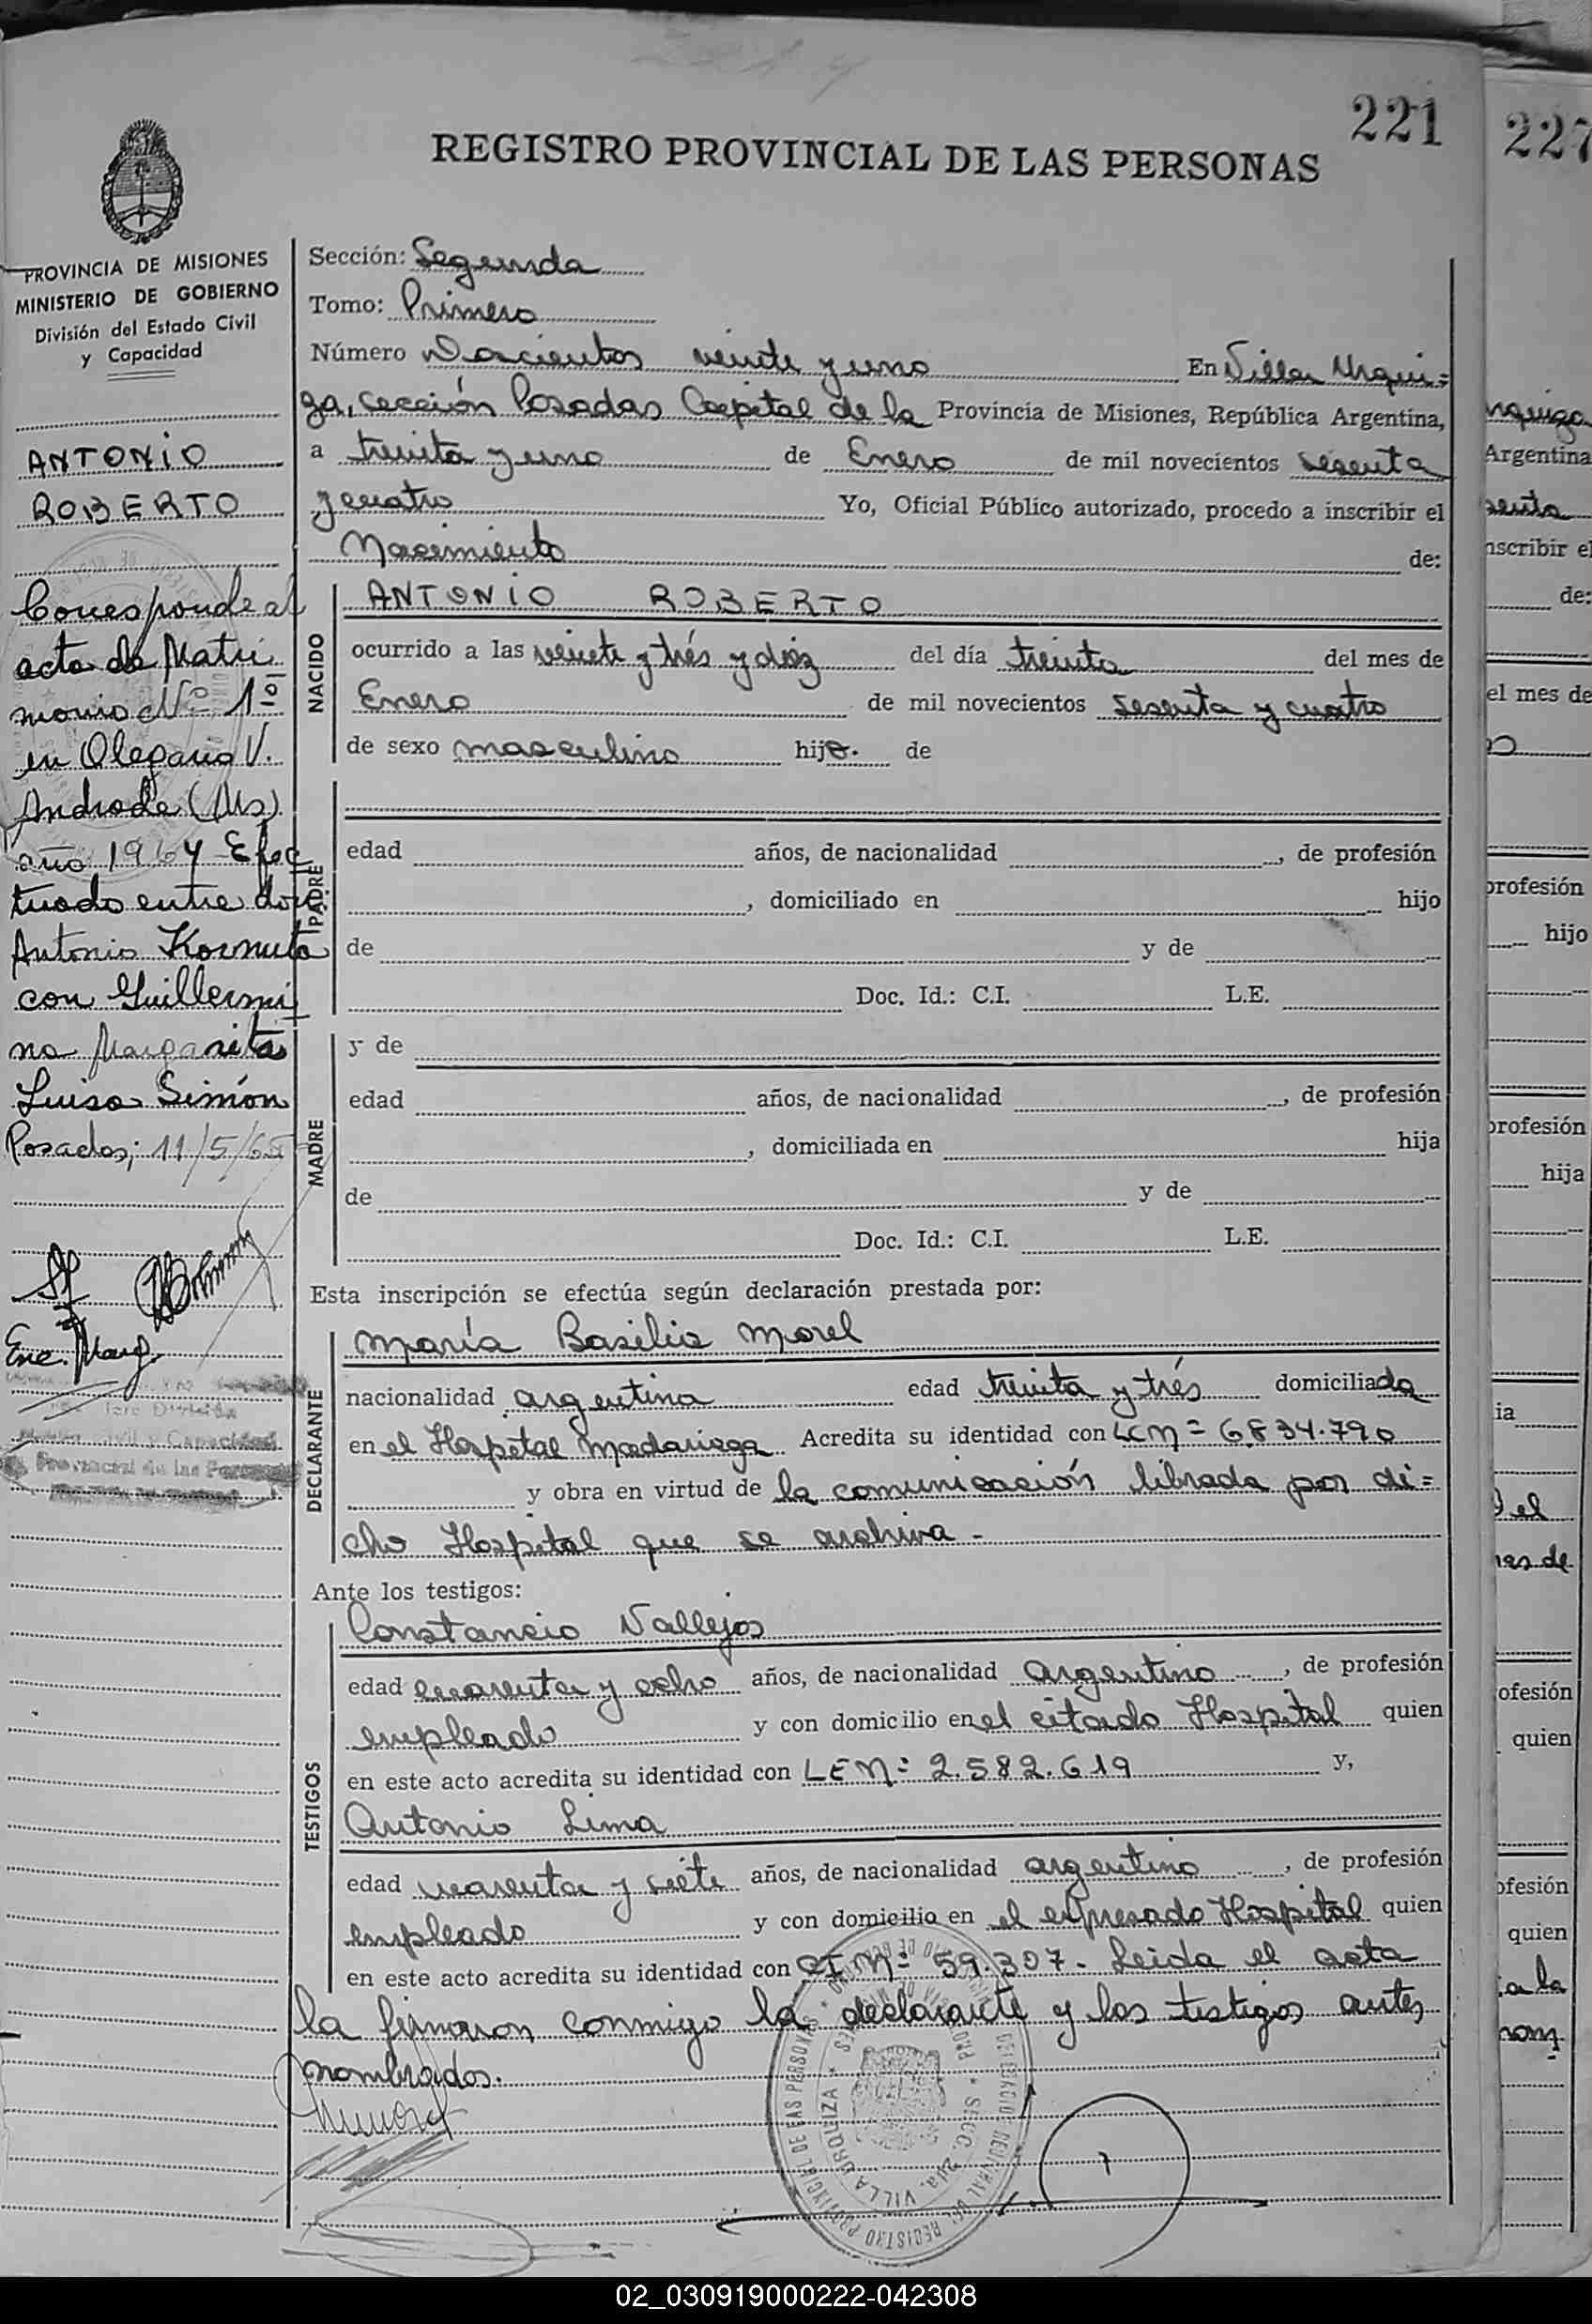 221
REGISTRO PROVINCIAL DE LAS PERSONAS
PROVINCIA DE MISIONES
MINISTERIO DE GOBIERNO
División del Estado Civil
y Capacidad
ANTONIO
ROBERTO
Corresponde al
acta de Matri
monio Nº 1º
en Olegario V.
Andrade (Ms)
año 1964 Efec
tuado entre don
Antonio Kornuta
con Guillermi
na Margarita
Luisa Simón
Posadas, 11/5/65
Enc. Marg.
Sección: Segunda
Tomo: Primero
Número Doscientos veinte y uno En Villa Urqui=
za, sección Posadas Capital de la Provincia de Misiones, República Argentina,
a treinta y uno de Enero de mil novecientos sesenta
y cuatro Yo, Oficial Público autorizado, procedo a inscribir el
Nacimiento de:
NACIDO
ANTONIO ROBERTO
ocurrido a las veinte y trés y diez del día treinta del mes de
Enero de mil novecientos sesenta y cuatro
de sexo masculino hijo. de
PADRE
edad años, de nacionalidad , de profesión
, domiciliado en hijo
de y de
Doc. Id.: C.I. L.E.
MADRE
y de
edad años, de nacionalidad , de profesión
, domiciliada en hija
de y de
Doc. Id.: C.I. L.E.
Esta inscripción se efectúa según declaración prestada por:
DECLARANTE
María Basilia Morel
nacionalidad argentina edad treinta y trés domiciliada
en el Hospital Madariaga Acredita su identidad con LCNº 6834.790
y obra en virtud de la comunicación librada por di=
cho Hospital que se archiva -
Ante los testigos:
TESTIGOS
Constancio Vallejos
edad cuarenta y ocho años, de nacionalidad argentino , de profesión
empleado y con domicilio en el citado Hospital quien
en este acto acredita su identidad con LENº 2.582.619 y,
Antonio Lima
edad cuarenta y siete años, de nacionalidad argentino , de profesión
empleado y con domicilio en el expresado Hospital quien
en este acto acredita su identidad con CI Nº 59.307- Leida el acta
la firmaron conmigo la declarante y los testigos antes
nombrados.
227
Argentina
inscribir el
de:
el mes de
profesión
hijo
profesión
hija
profesión
quien
ofesión
quien
02_030919000222-042308